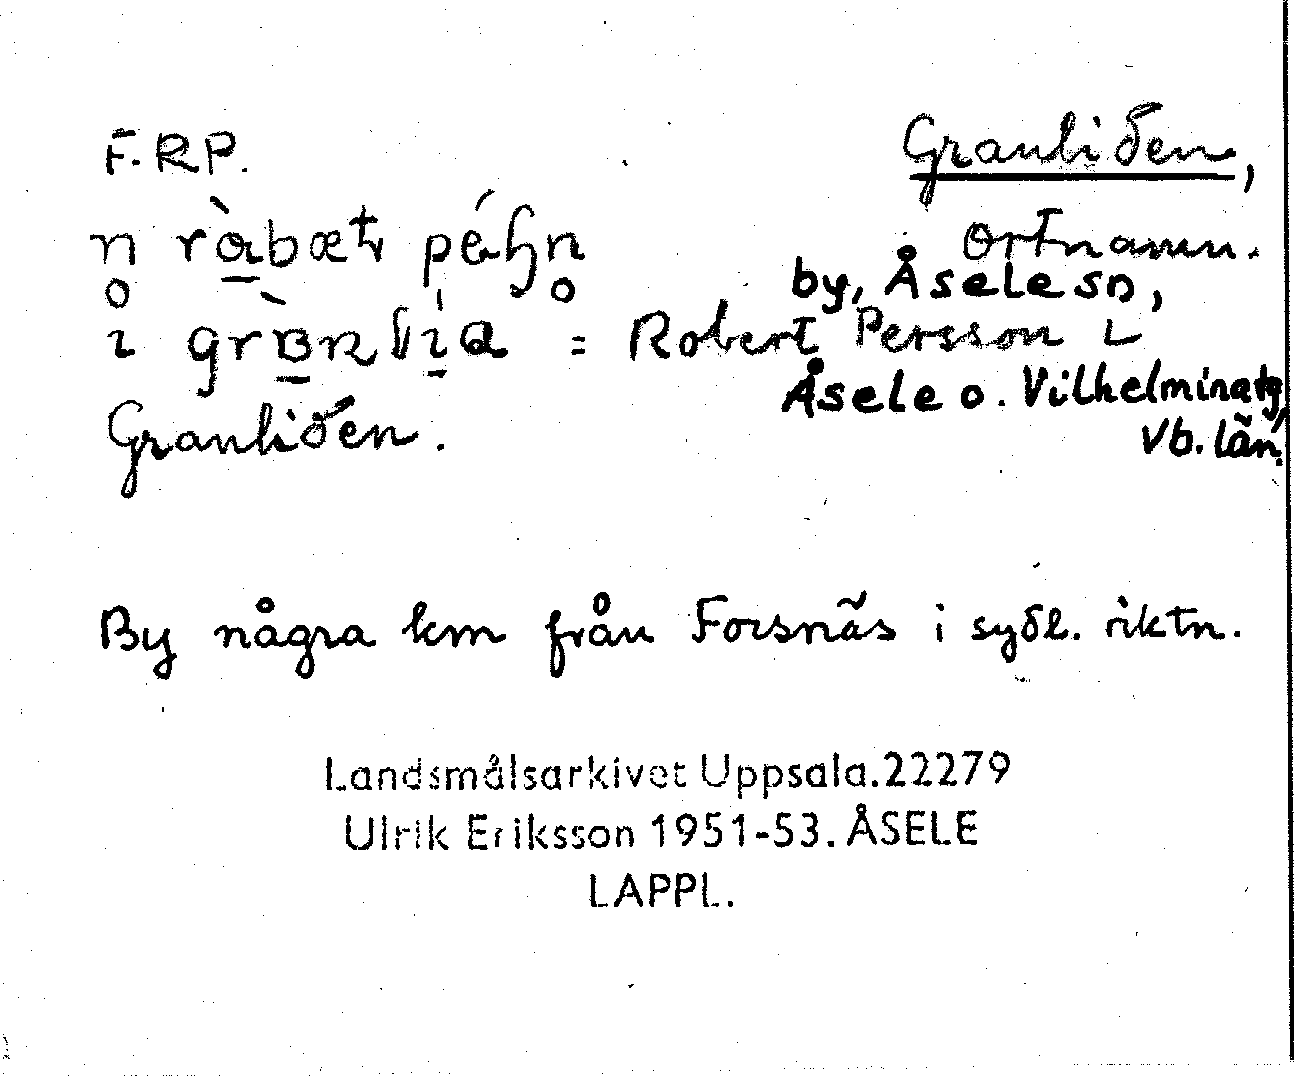 F.RP.
Granliden,
Ortnamn.
by, Åsele sn,
= Robert Persson
Åsele o. Vilhelmina tg,
Vb. län.
Granliden.
By några km från Forsnäs i sydl. riktn.
Landsmålsarkivet Uppsala.22279
Ulrik Eriksson 1951-53. ÅSELE
LAPPL.